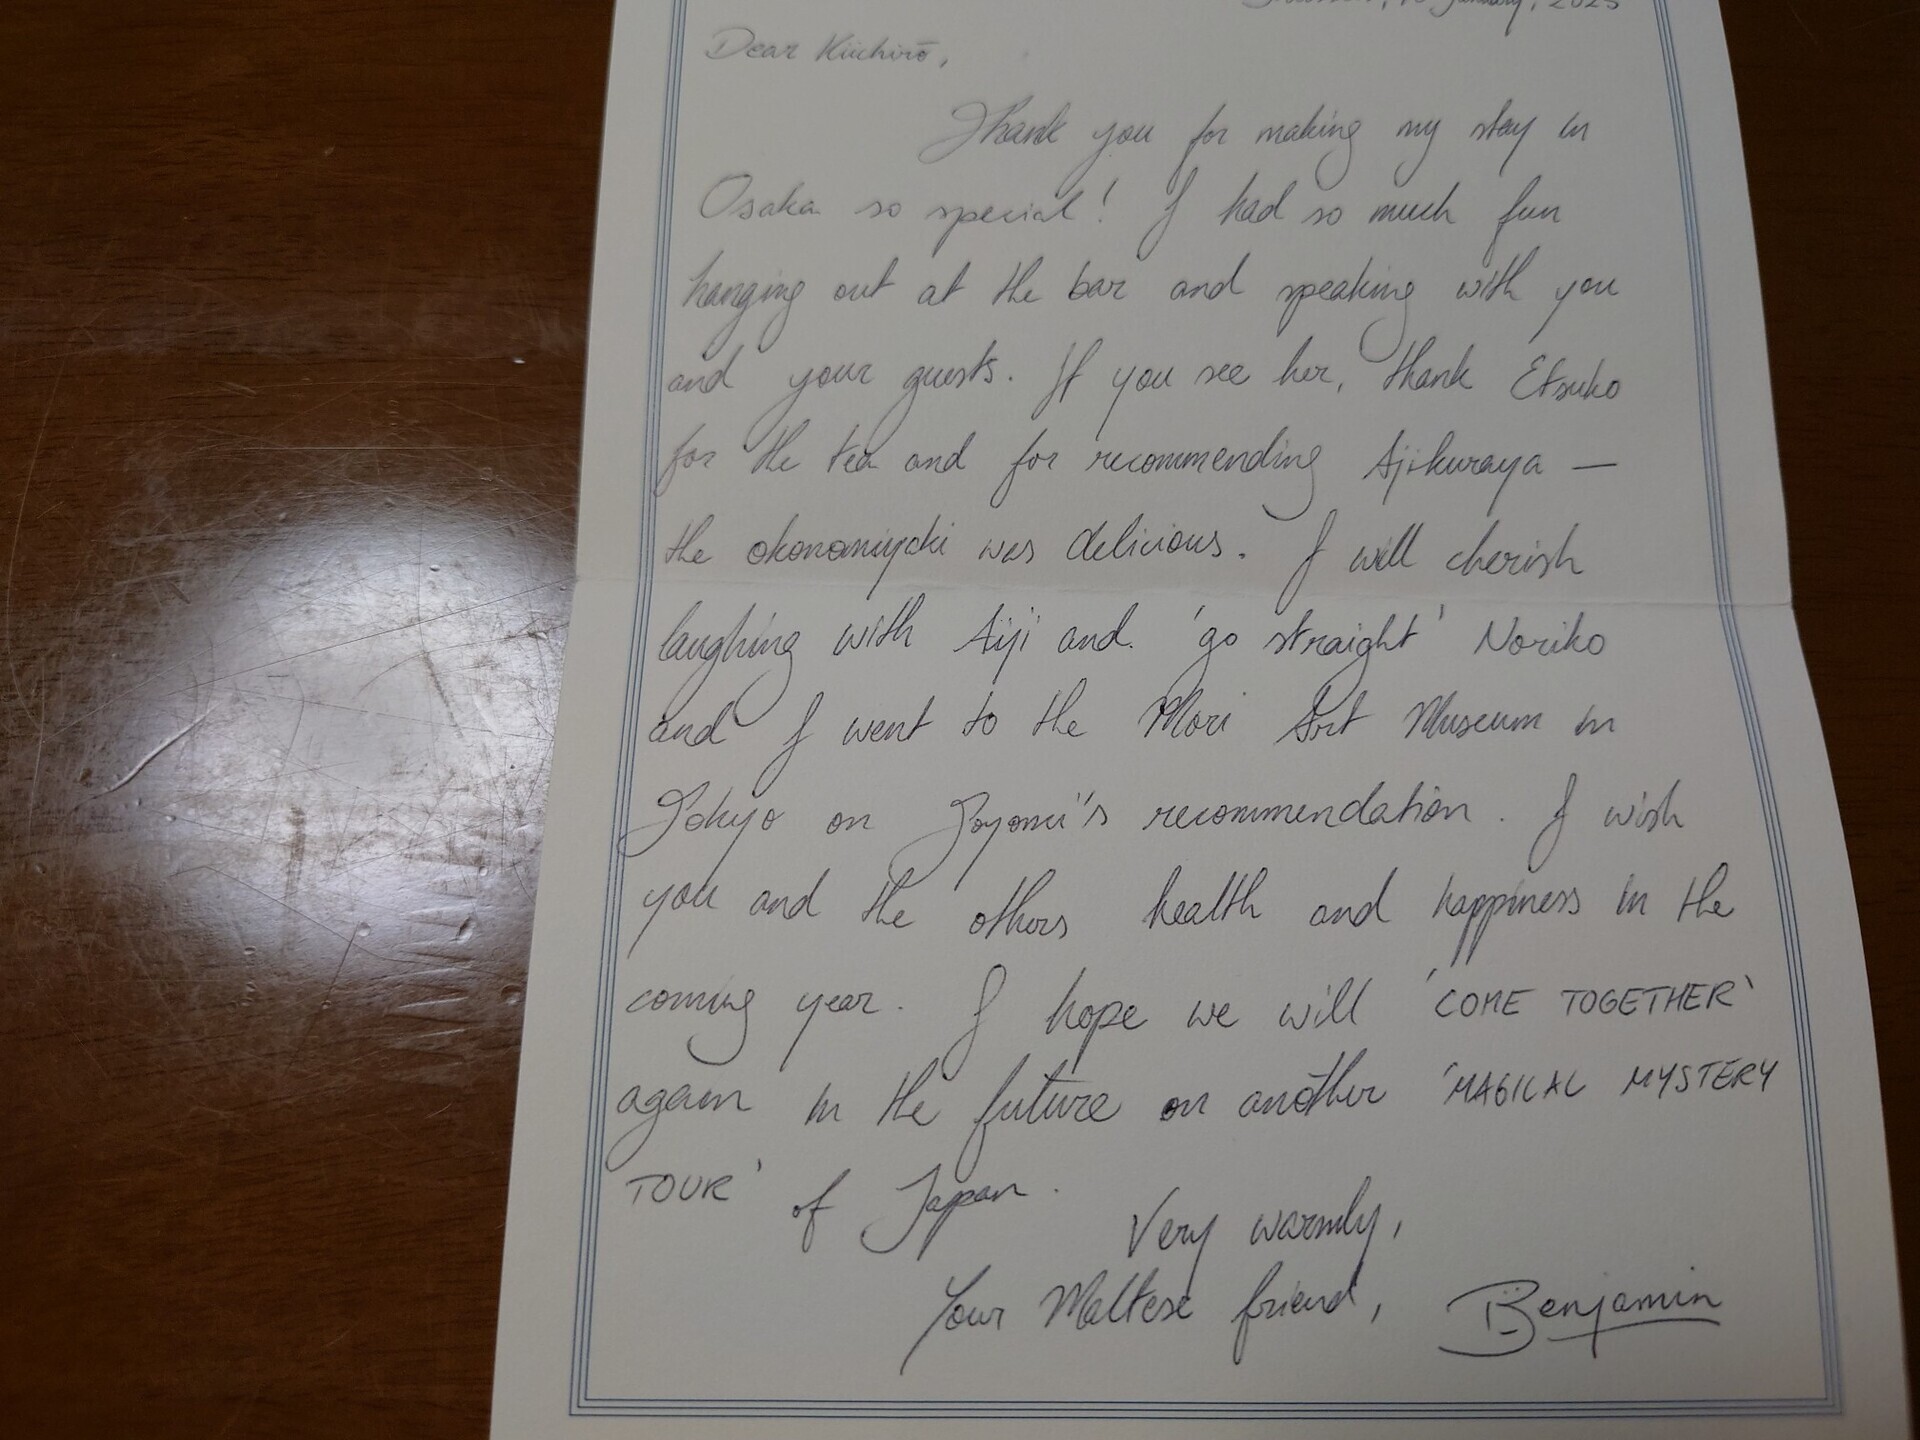 January, 2025
Dear Kiichirō,
Thank you for making my stay in
Osaka so special! I had so much fun
hanging out at the bar and speaking with you
and your guests. If you see her, thank Etsuko
for the tea and for recommending Ajikuraya —
the okonomiyaki was delicious. I will cherish
laughing with Aiji and 'go straight' Noriko
and I went to the Mori Art Museum in
Tokyo on recommendation. I wish
you and the others health and happiness in the
coming year. I hope we will 'COME TOGETHER'
again in the future on another 'MAGICAL MYSTERY
TOUR' of Japan.
Very warmly,
Your Maltese friend, Benjamin